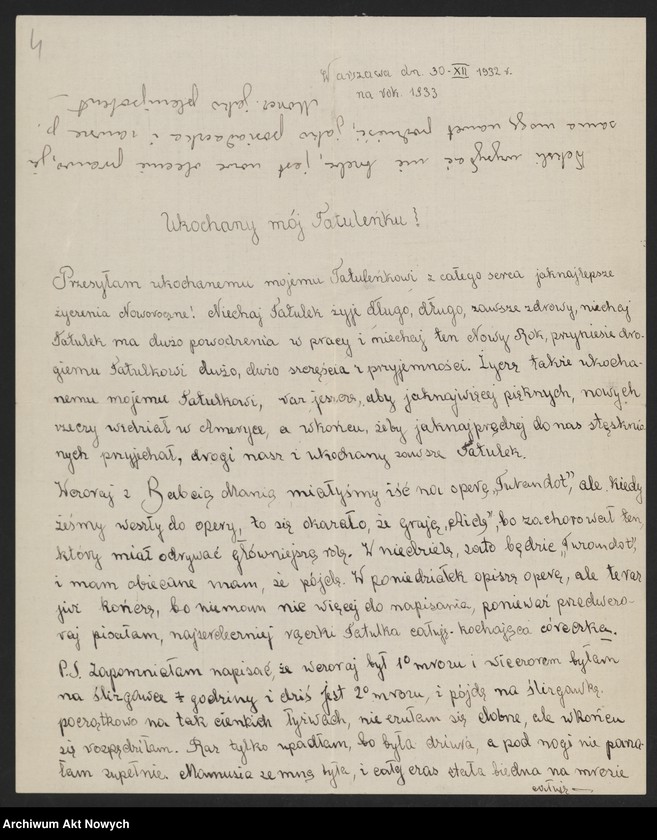 4
Warszawa dn. 30-XII 1932 r.
na rok 1933
Weksli wysyłać nie trzeba, jest nowe prawo, ja
sama mogę nawet jako posiadaczka i zawsze p.
Moner. jako plenipotent
Ukochany mój Tatuleńku!
Przesyłam ukochanemu mojemu Tatuleńkowi z całego serca jaknajlepsze
życzenia Noworoczne! Niechaj Tatulek żyje długo, długo, zawsze zdrowy, niechaj
Tatulek ma dużo powodzenia w pracy i niechaj ten Nowy Rok, przyniesie dro-
giemu Tatulkowi dużo, dużo szczęścia i przyjemności. Życzę także ukocha-
nemu mojemu Tatulkowi, raz jeszcze, aby jaknajwięcej pięknych, nowych
rzeczy widział w Ameryce, a wkońcu, żeby jaknajprędzej do nas stęsknio-
nych przyjechał, drogi nasz i ukochany zawsze Tatulek.
Wczoraj z Babcią Manią miałyśmy iść na operę „Turandot”, ale kiedy
żeśmy weszły do opery, to się okazało, że grają „Aidę”, bo zachorował ten,
który miał odrywać główniejszą rolę. W niedzielę, zato będzie „Turandot”,
i mam obiecane znam, że pójdę. W poniedziałek opiszę operę, ale teraz
już kończę, bo niemam nic więcej do napisania, ponieważ przedwczo-
raj pisałam, najserdeczniej rączki Tatulka całuję - kochająca córeczka.
P.S. Zapomniałam napisać, że wczoraj był 1° mrozu i wieczorem byłam
na ślizgawce 7 godziny i dziś jest 2° mrozu, i pójdę na ślizgawkę.
początkowo na tak cienkich łyżwach, nie czułam się dobrze, ale wkońcu
się rozpędziłam. Raz tylko upadłam, bo była dziura, a pod nogi nie patrza-
łam zupełnie. Mamusia ze mną była, i cały czas stała biedna na mrozie
Archiwum Akt Nowych